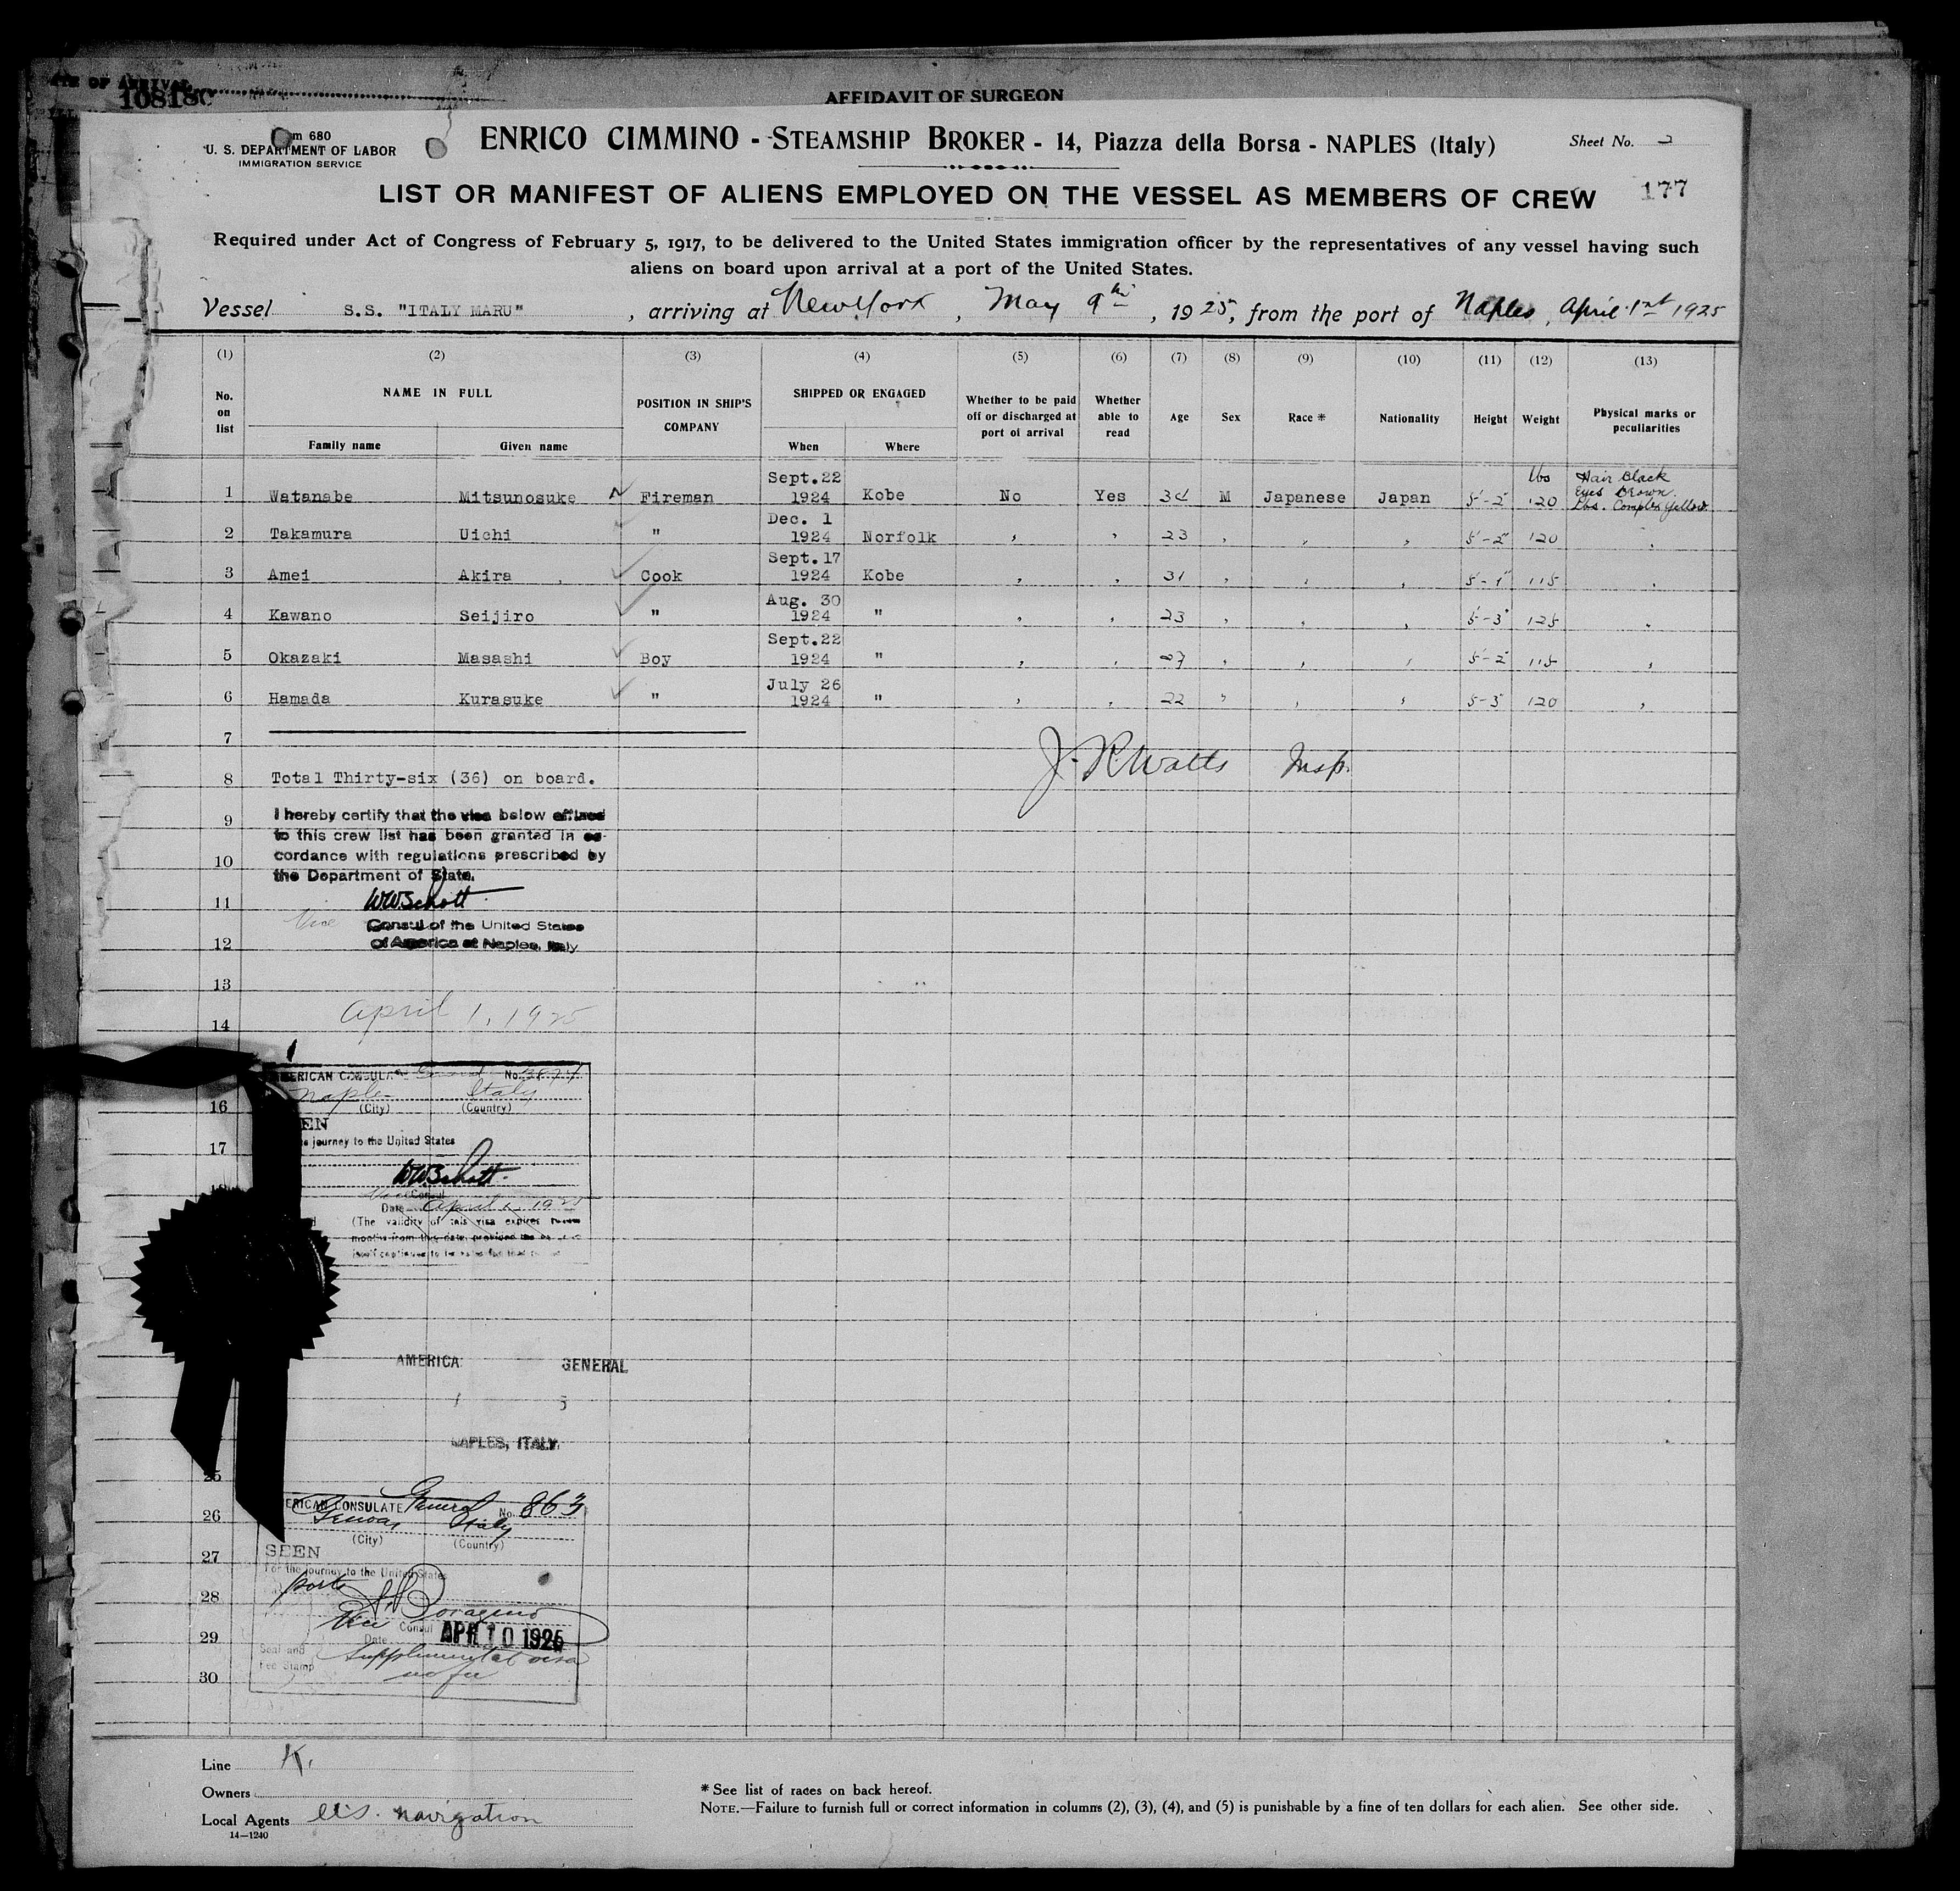 AFFIDAVIT OF SURGEON
U. S. DEPARTMENT OF LABOR
IMMIGRATION SERVICE
ENRICO CIMMINO - STEAMSHIP BROKER - 14, Piazza della Borsa - NAPLES (Italy)
Sheet No. 2
LIST OR MANIFEST OF ALIENS EMPLOYED ON THE VESSEL AS MEMBERS OF CREW 177
Required under Act of Congress of February 5, 1917, to be delivered to the United States immigration officer by the representatives of any vessel having such
aliens on board upon arrival at a port of the United States.
Vessel S.S. "ITALY MARU", arriving at New York, May 9th, 1925, from the port of Naples, April 1st 1925
(1) (2) (3) (4) (5) (6) (7) (8) (9) (10) (11) (12) (13)
No. on list NAME IN FULL Family name Given name POSITION IN SHIP'S COMPANY SHIPPED OR ENGAGED When Where Whether to be paid off or discharged at port of arrival Whether able to read Age Sex Race * Nationality Height Weight Physical marks or peculiarities
1 Watanabe Mitsunosuke Fireman Sept.22 1924 Kobe No Yes M Japanese Japan 5'-2" lbs 120 Hair Black Eyes Brown. Complex yellow
2 Takamura Uichi " Dec. 1 1924 Norfolk 23 5'-2" 120
3 Amei Akira Cook Sept.17 1924 Kobe 31 115
4 Kawano Seijiro " Aug. 30 1924 " 23 5'-3" 125
5 Okazaki Masashi Boy Sept.22 1924 " 5'-2" 115
6 Hamada Kurasuke " July 26 1924 " 22 5-3" 120
7
J. R. Watts Insp.
8 Total Thirty-six (36) on board.
9 I hereby certify that the visa below affixed
to this crew list has been granted in ac-
10 cordance with regulations prescribed by
the Department of State.
11 W.W. Schott
Vice Consul of the United States
12 of America at Naples, Italy
13
April 1, 1925
14
AMERICAN CONSULATE General No.
Naples Italy
16 (City) (Country)
17 journey to the United States
W.W. Schott
Vice Consul
Date April 1, 1925
(The validity of this visa expires
months from this date, provided the
AMERICA GENERAL
NAPLES, ITALY.
25
AMERICAN CONSULATE General No. 863
26 Genoa Italy
(City) (Country)
27 SEEN
For the journey to the United States
28 ports
Vice Consul
29 Date APR 10 1925
Seal and Fee Stamp Supplemental visa
30 no fee
Line K.
Owners
Local Agents U.S. Navigation
14—1240
* See list of races on back hereof.
NOTE.—Failure to furnish full or correct information in columns (2), (3), (4), and (5) is punishable by a fine of ten dollars for each alien. See other side.